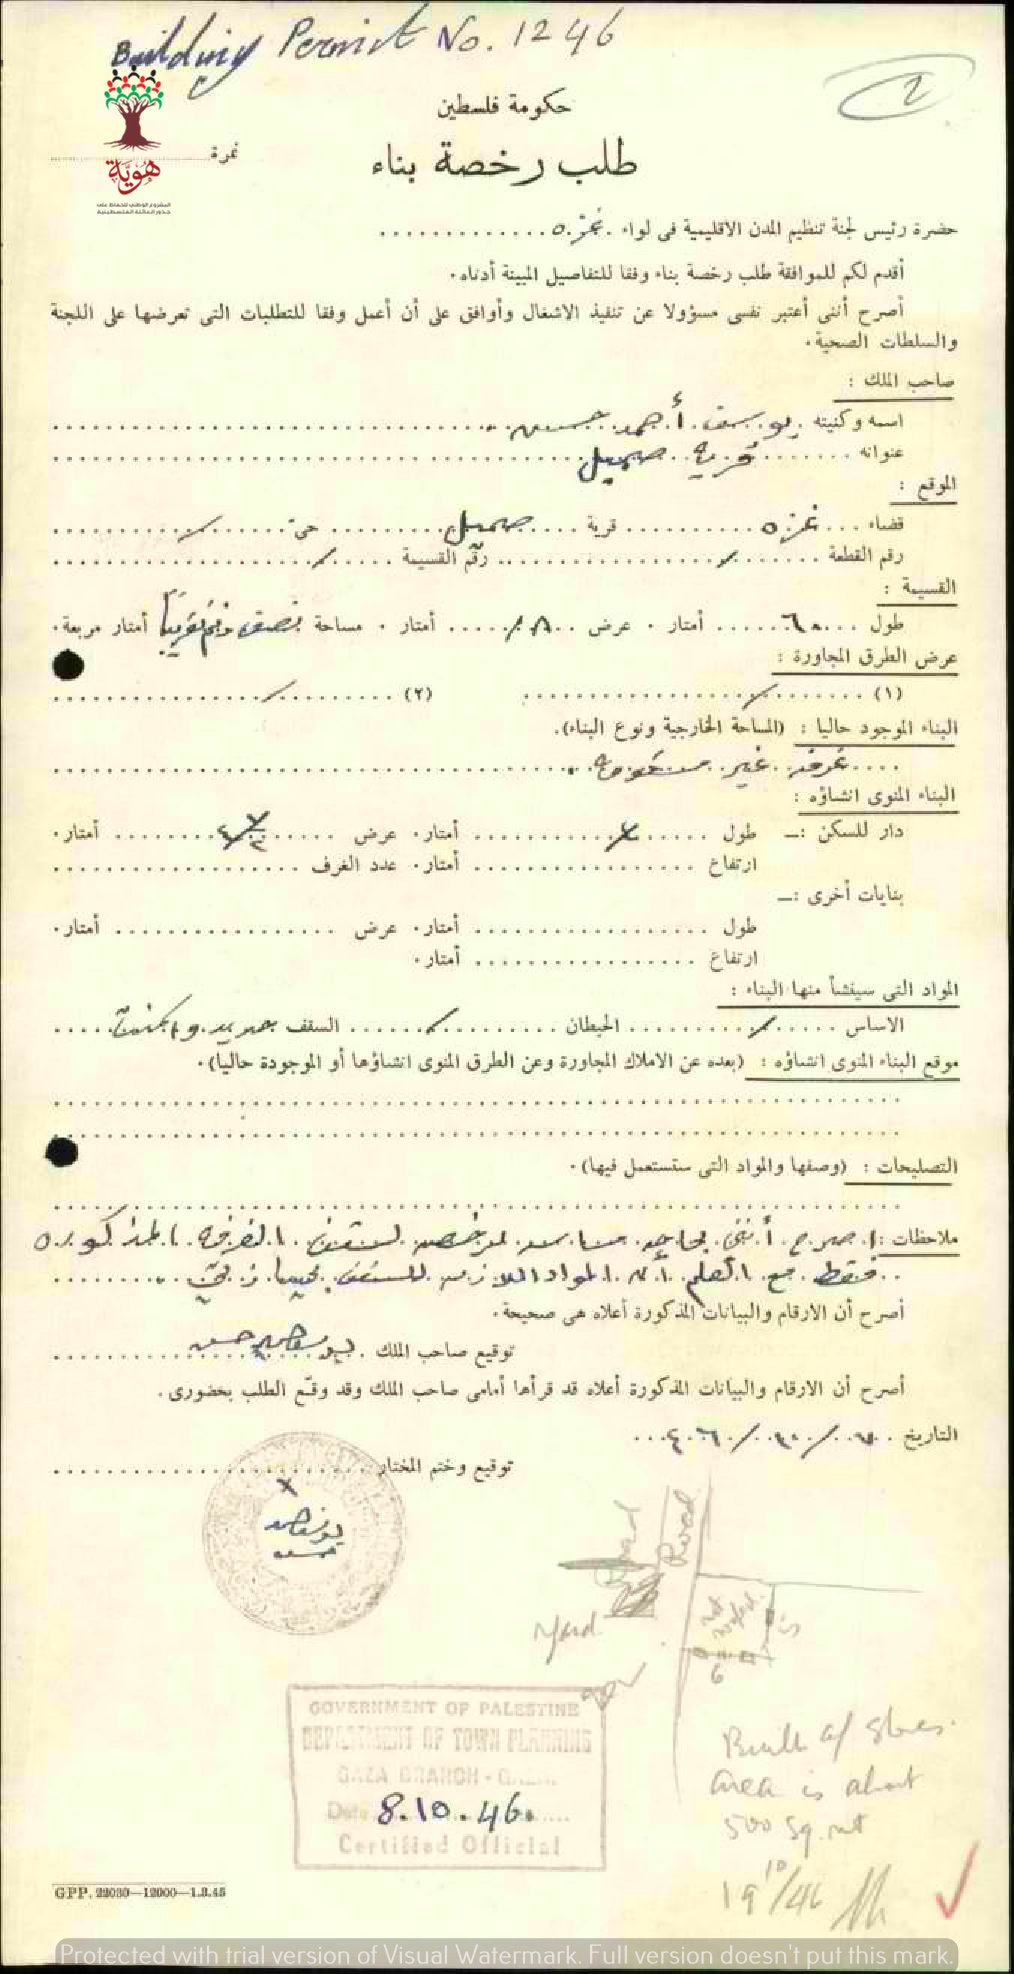 Building Permit No. 1246
2
حكومة فلسطين
طلب رخصة بناء
نمرة
هُويّة
المشروع الوطني للحفاظ على
جذور العائلة الفلسطينية
حضرة رئيس لجنة تنظيم المدن الاقليمية فى لواء غزه
أقدم لكم للموافقة طلب رخصة بناء وفقا للتفاصيل المبينة أدناه.
أصرح أننى أعتبر نفسى مسؤولا عن تنفيذ الاشغال وأوافق على أن أعمل وفقا للتطلبات التى تعرضها على اللجنة
والسلطات الصحية.
صاحب الملك :
اسمه وكنيته يوسف أحمد حسين
عنوانه قرية صميل
الموقع :
قضاء غزه قرية صميل حى /
رقم القطعة / رقم القسيمة /
القسيمة :
طول ٦٠ أمتار . عرض ١٨ أمتار . مساحة نصف دنم تقريباً أمتار مربعة.
عرض الطرق المجاورة :
(١) / (٢) /
البناء الموجود حاليا : (المساحة الخارجية ونوع البناء).
غرفه غير مسقوفه
البناء المنوى انشاؤه :
دار للسكن :ــ طول أمتار. عرض أمتار.
ارتفاع أمتار. عدد الغرف
بنايات أخرى :ــ
طول أمتار. عرض أمتار.
ارتفاع أمتار.
المواد التى سينشأ منها البناء :
الاساس / الحيطان / السقف حديد وباطون
موقع البناء المنوى انشاؤه : (بعده عن الاملاك المجاورة وعن الطرق المنوى انشاؤها أو الموجودة حاليا).
التصليحات : (وصفها والمواد التى ستستعمل فيها).
ملاحظات : اصرح أننى بحاجه ماسه لرخصه لسقف الغرفه المذكوره
فقط مع العلم أن المواد اللازمه للسقف
أصرح أن الارقام والبيانات المذكورة أعلاه هى صحيحة.
توقيع صاحب الملك يوسف احمد حسين
أصرح أن الارقام والبيانات المذكورة أعلاه قد قرأها أمامى صاحب الملك وقد وقّع الطلب بحضورى.
التاريخ ٧/١٠/٤٦
توقيع وختم المختار
Road
Road
Yard
not roofed
6
GOVERNMENT OF PALESTINE
DEPARTMENT OF TOWN PLANNING
GAZA BRANCH - GAZA
Date 8.10.46.
Certified Official
Built of stones.
area is about
500 sq. mt
19/10/46
GPP. 22030—12000—1.3.45
Protected with trial version of Visual Watermark. Full version doesn't put this mark.